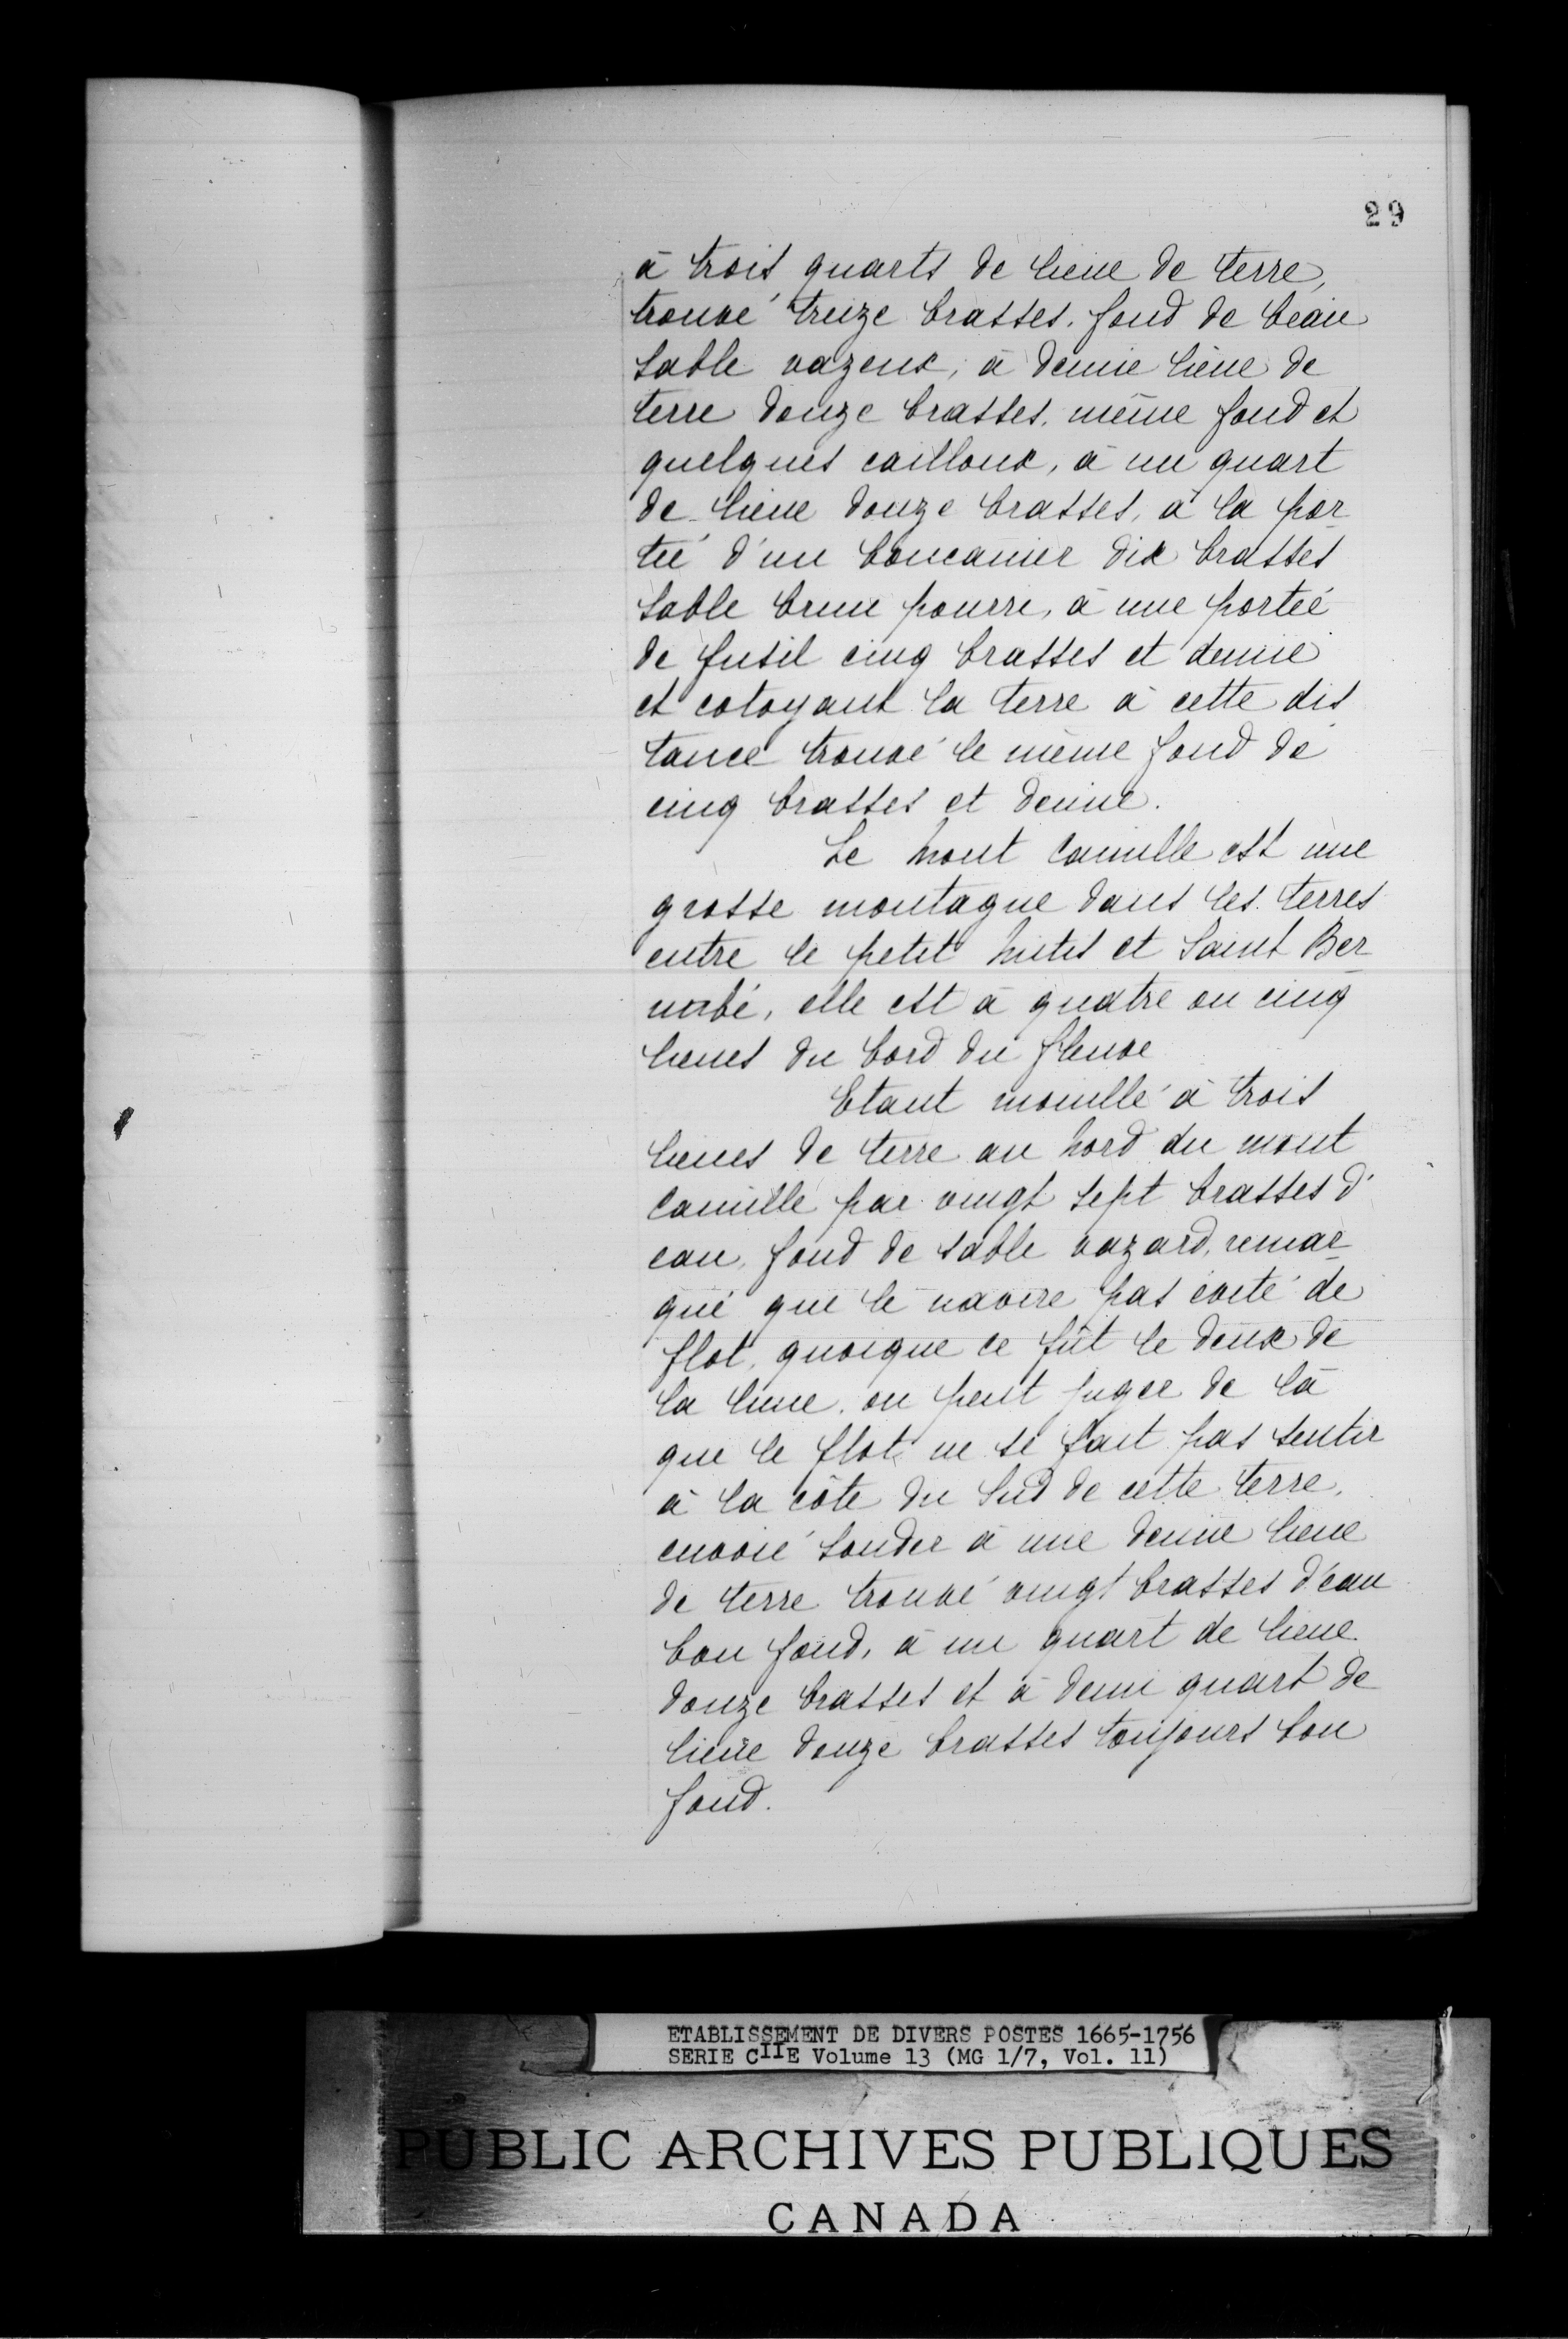 29
à trois quarts de lieue de terre,
trouvé treize brasses, fond de beau
sable vazeux, à demie lieue de
terre douze brasses, même fond et
quelques cailloux, à un quart
de lieue douze brasses, à la por
teé d'un boucanier dix brasses
sable brun pourri, à une porteé
de fusil cinq brasses et demie
et cotoyant la terre à cette dis
tance trouvé le même fond de
cinq brasses et demie.
Le mont Camille est une
grosse montagne dans les terres
entre le petit Mitis et Saint Bar
nabé, elle est à quatre ou cinq
lieues du bord du fleuve
Etant mouillé à trois
lieues de terre au Nord du mont
Camille par vingt sept brasses d'
eau, fond de sable vazard, remar
qué que le navire pas évité de
flot, quoique ce fût le deux de
la lune, on peut juger de là
que le flot ne se fait pas sentir
à la côte du Sud de cette terre,
envoié sonder à une demie lieue
de terre trouvé vingt brasses d'eau
bon fond, à un quart de lieue
douze brasses et à demi quart de
lieue douze brasses toujours bon
fond.
ETABLISSEMENT DE DIVERS POSTES 1665-1756
SERIE CIIE Volume 13 (MG 1/7, Vol. 11)
PUBLIC ARCHIVES PUBLIQUES
CANADA